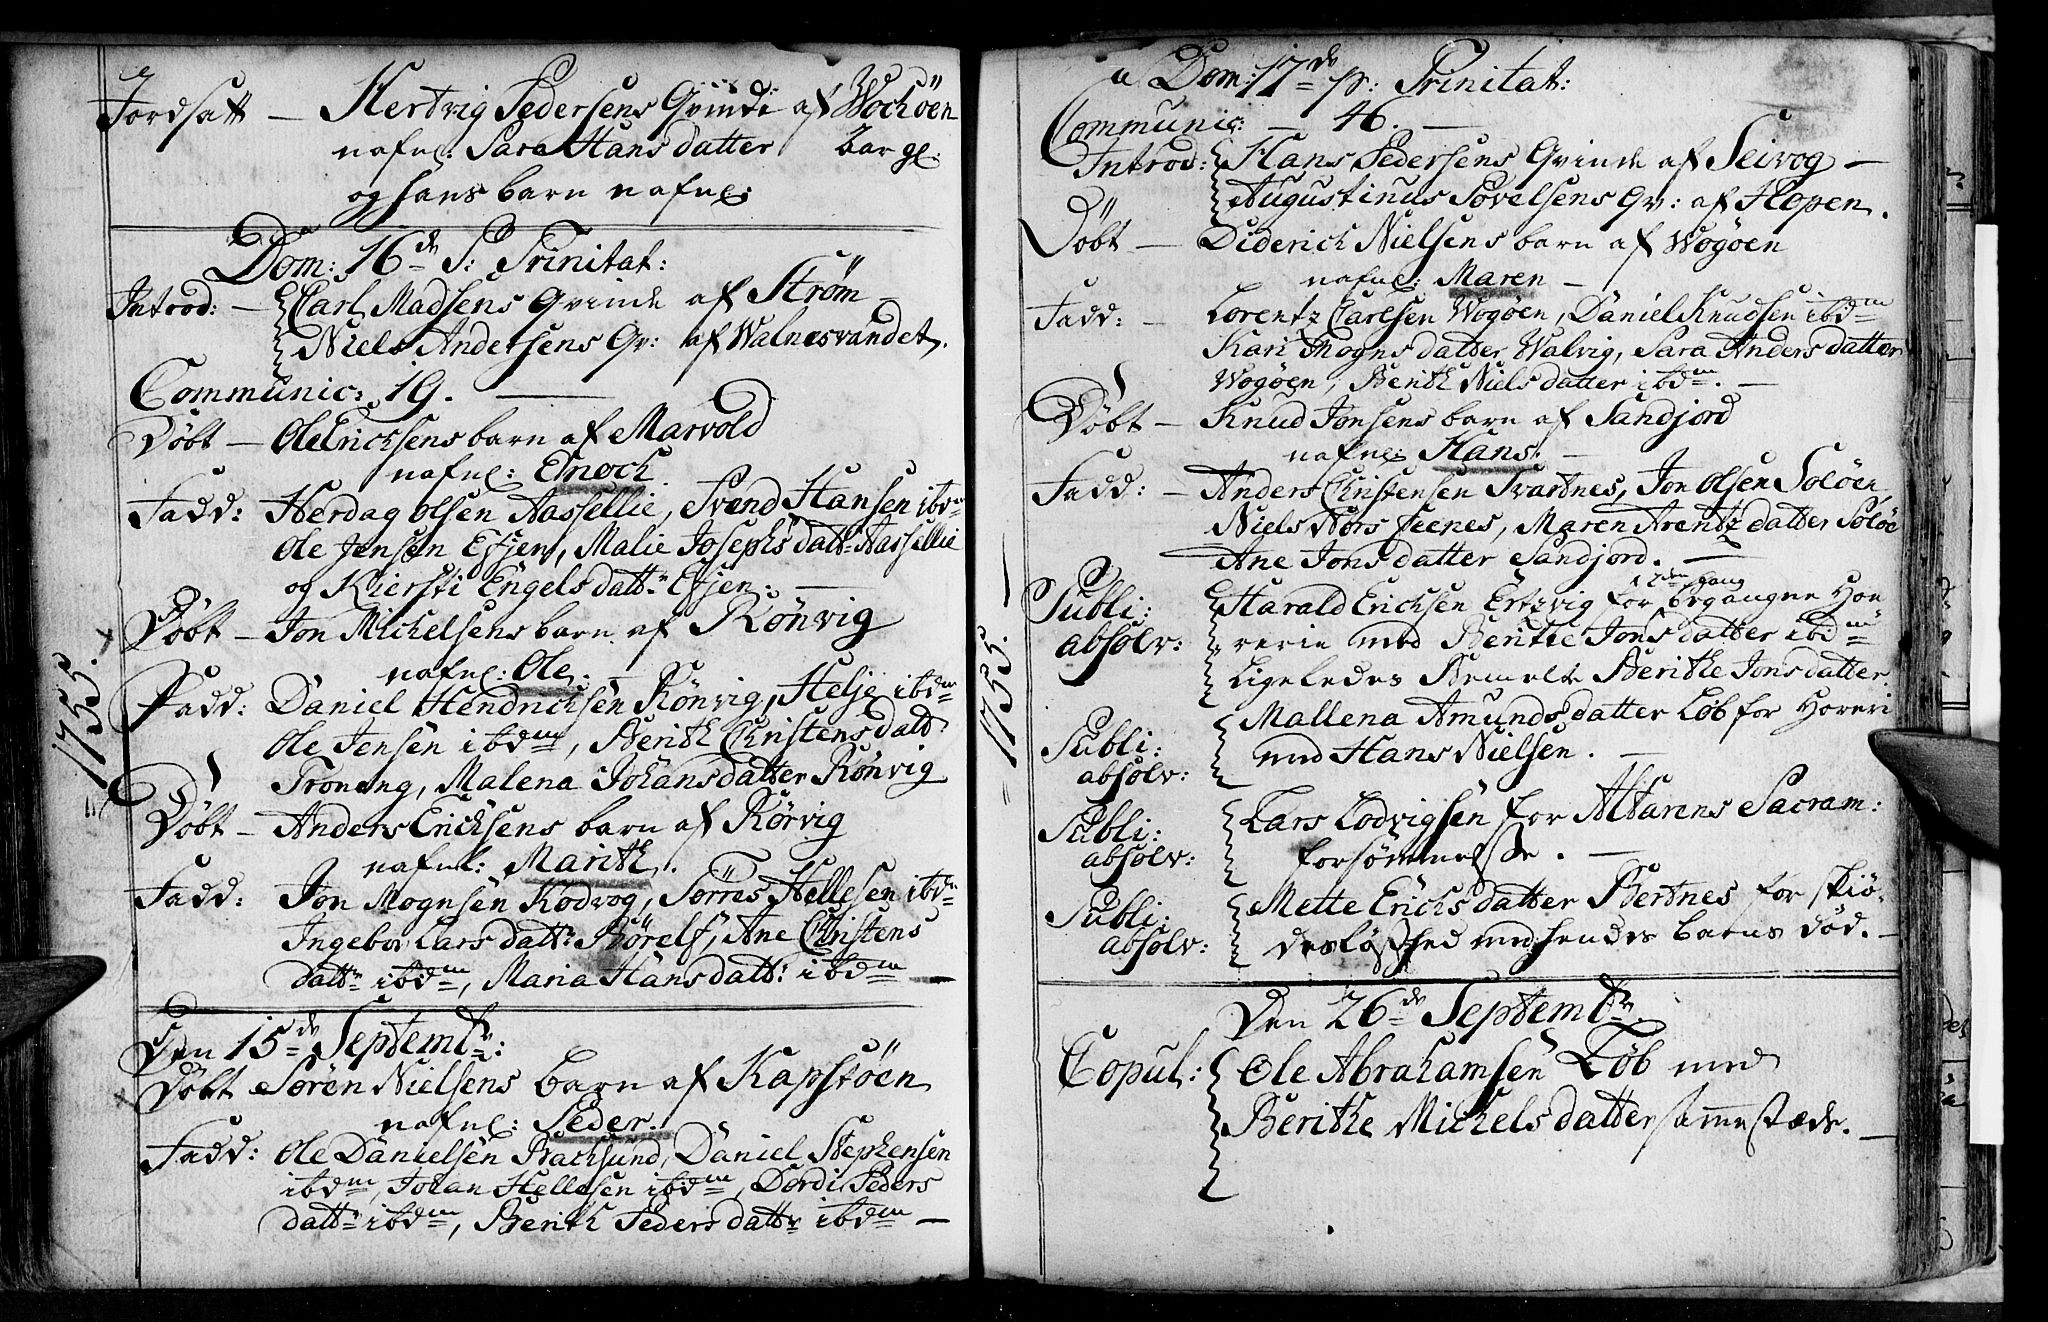 Jordsatt — Hertvig Pedersens Qvinde af Wochöen
nafnl: Sara Hans datter
og hans barn nafnl:
Dom: 16de P: Trinitat:
Introd: — Carl Madsens Qvinde af Strøm
Niels Andersens Qv: af Walnesvandet.
Communic: 19. —
Döbt — Ole Erichsens barn af Marvold
nafnl: Enoch.
Fadd: Herdag Olsen Aassellie, Svend Hansen ibdm
Ole Jensen Essjen, Malie Josephs datt: Aassellie
og Kiersti Engels dattr Essjen: —
Döbt — Jon Michelsens barn af Rönvig
nafnl: Ole. —
Fadd: Daniel Hendrichsen Rönvig, Helje ibdm
Ole Jensen ibdm, Berith Christens datt
Troneng, Malena Johans datter Rönvig
1755.
Döbt — Anders Erichsens barn af Rörvig
nafnl: Marith.
Fadd: Jon Mognsen Kodvog, Sörres Hellesen ibdm
Ingebor Lars dattr Börelf, Ane Christens
dattr ibdm, Maria Hans datt: ibdm —
Den 15de Septembr:
Döbt Sören Nielsens barn af Kapstöen
nafnl: Peder.
Fadd: Ole Danielsen Bachsund, Daniel Stephensen
ibdm, Johan Hellesen ibdm, Dordi Peders
dattr ibdm, Berith Peders dattr ibdm —
Dom: 17de p: Trinitat:
Communic: — 46. —
Introd: Hans Pedersens Qvinde af Seivog —
Augustinus Povelsens Qv: af Hopen.
Döbt — Diderich Nielsens barn af Wogöen
nafnl: Maren —
Fadd: — Lorentz Carlsen Wogöen, Daniel Knudsen ibdm
Kari Mogns datter Walvig, Sara Anders datter
Wogöen, Berith Niels datter ibdm. —
Döbt — Knud Jonsens barn af Sandjord
nafnl: Hans. —
Fadd: — Anders Christensen Svartnes, Jon Olsen Solöen
Niels Nors Feenes, Maren Arentz datter Solöe
Ane Jons datter Sandjord. —
1755. —
Publi: absolv: Harald Erichsen Ertzvig for 2den gang begangne Hoe
rerie med Berithe Jons datter ibdm
Ligeledes Bemelte Berithe Jons datter.
Publi: absolv: Mallena Amunds datter Löb for Horeri
med Hans Nielsen. —
Publi: absolv: Lars Lodvigsen for Altarens Sacram:
forsömmelse. —
Publi: absolv: Mette Erichs datter Bertnes for skiö-
deslöshed med hendes barns död. —
Den 26de Septembr.
Copul: Ole Abrahamsen Löb med
Berithe Michels datter sammestæds. —